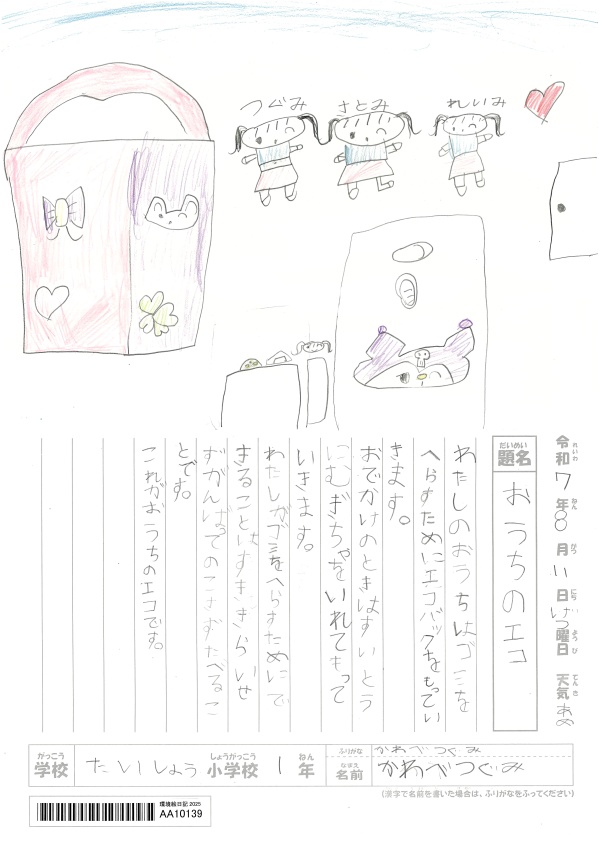 つぐみ
さとみ
れいみ
令和れいわ7年ねん8月がつ11日にちげつ曜日ようび 天気てんきあめ
題名だいめい おうちのエコ
わたしのおうちはゴミを
へらすためにエコバックをもってい
きます。
おでかけのときはすいとう
にむぎちゃをいれてもって
いきます。
わたしがゴミをへらすためにで
きることはすききらいせ
ずがんばってのこさずたべるこ
とです。
これがおうちのエコです。
学校がっこう たいしょう 小学校しょうがっこう 1年ねん
ふりがな かわべつぐみ
名前なまえ かわべつぐみ
(漢字で名前を書いた場合は、ふりがなをふってください)
環境絵日記 2025
AA10139